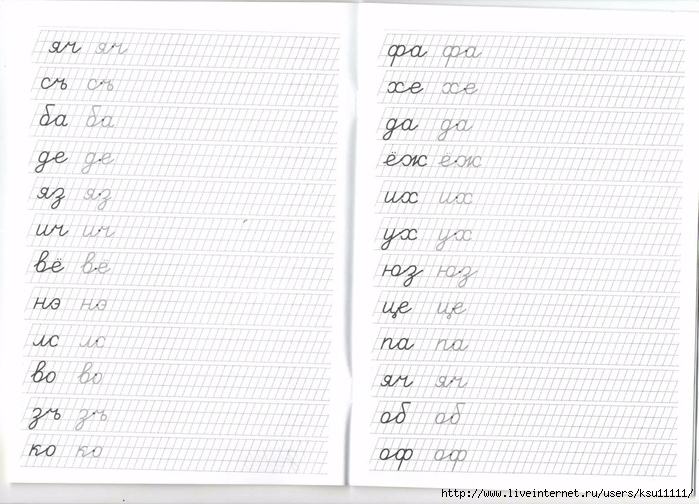 яч яч
съ съ
ба ба
де де
яз яз
ич ич
вё вё
нэ нэ
лс лс
во во
зъ зъ
ко ко
фа фа
хе хе
да да
ёж ёж
их их
ух ух
юз юз
це це
па па
яч яч
об об
оф оф
http://www.liveinternet.ru/users/ksu11111/